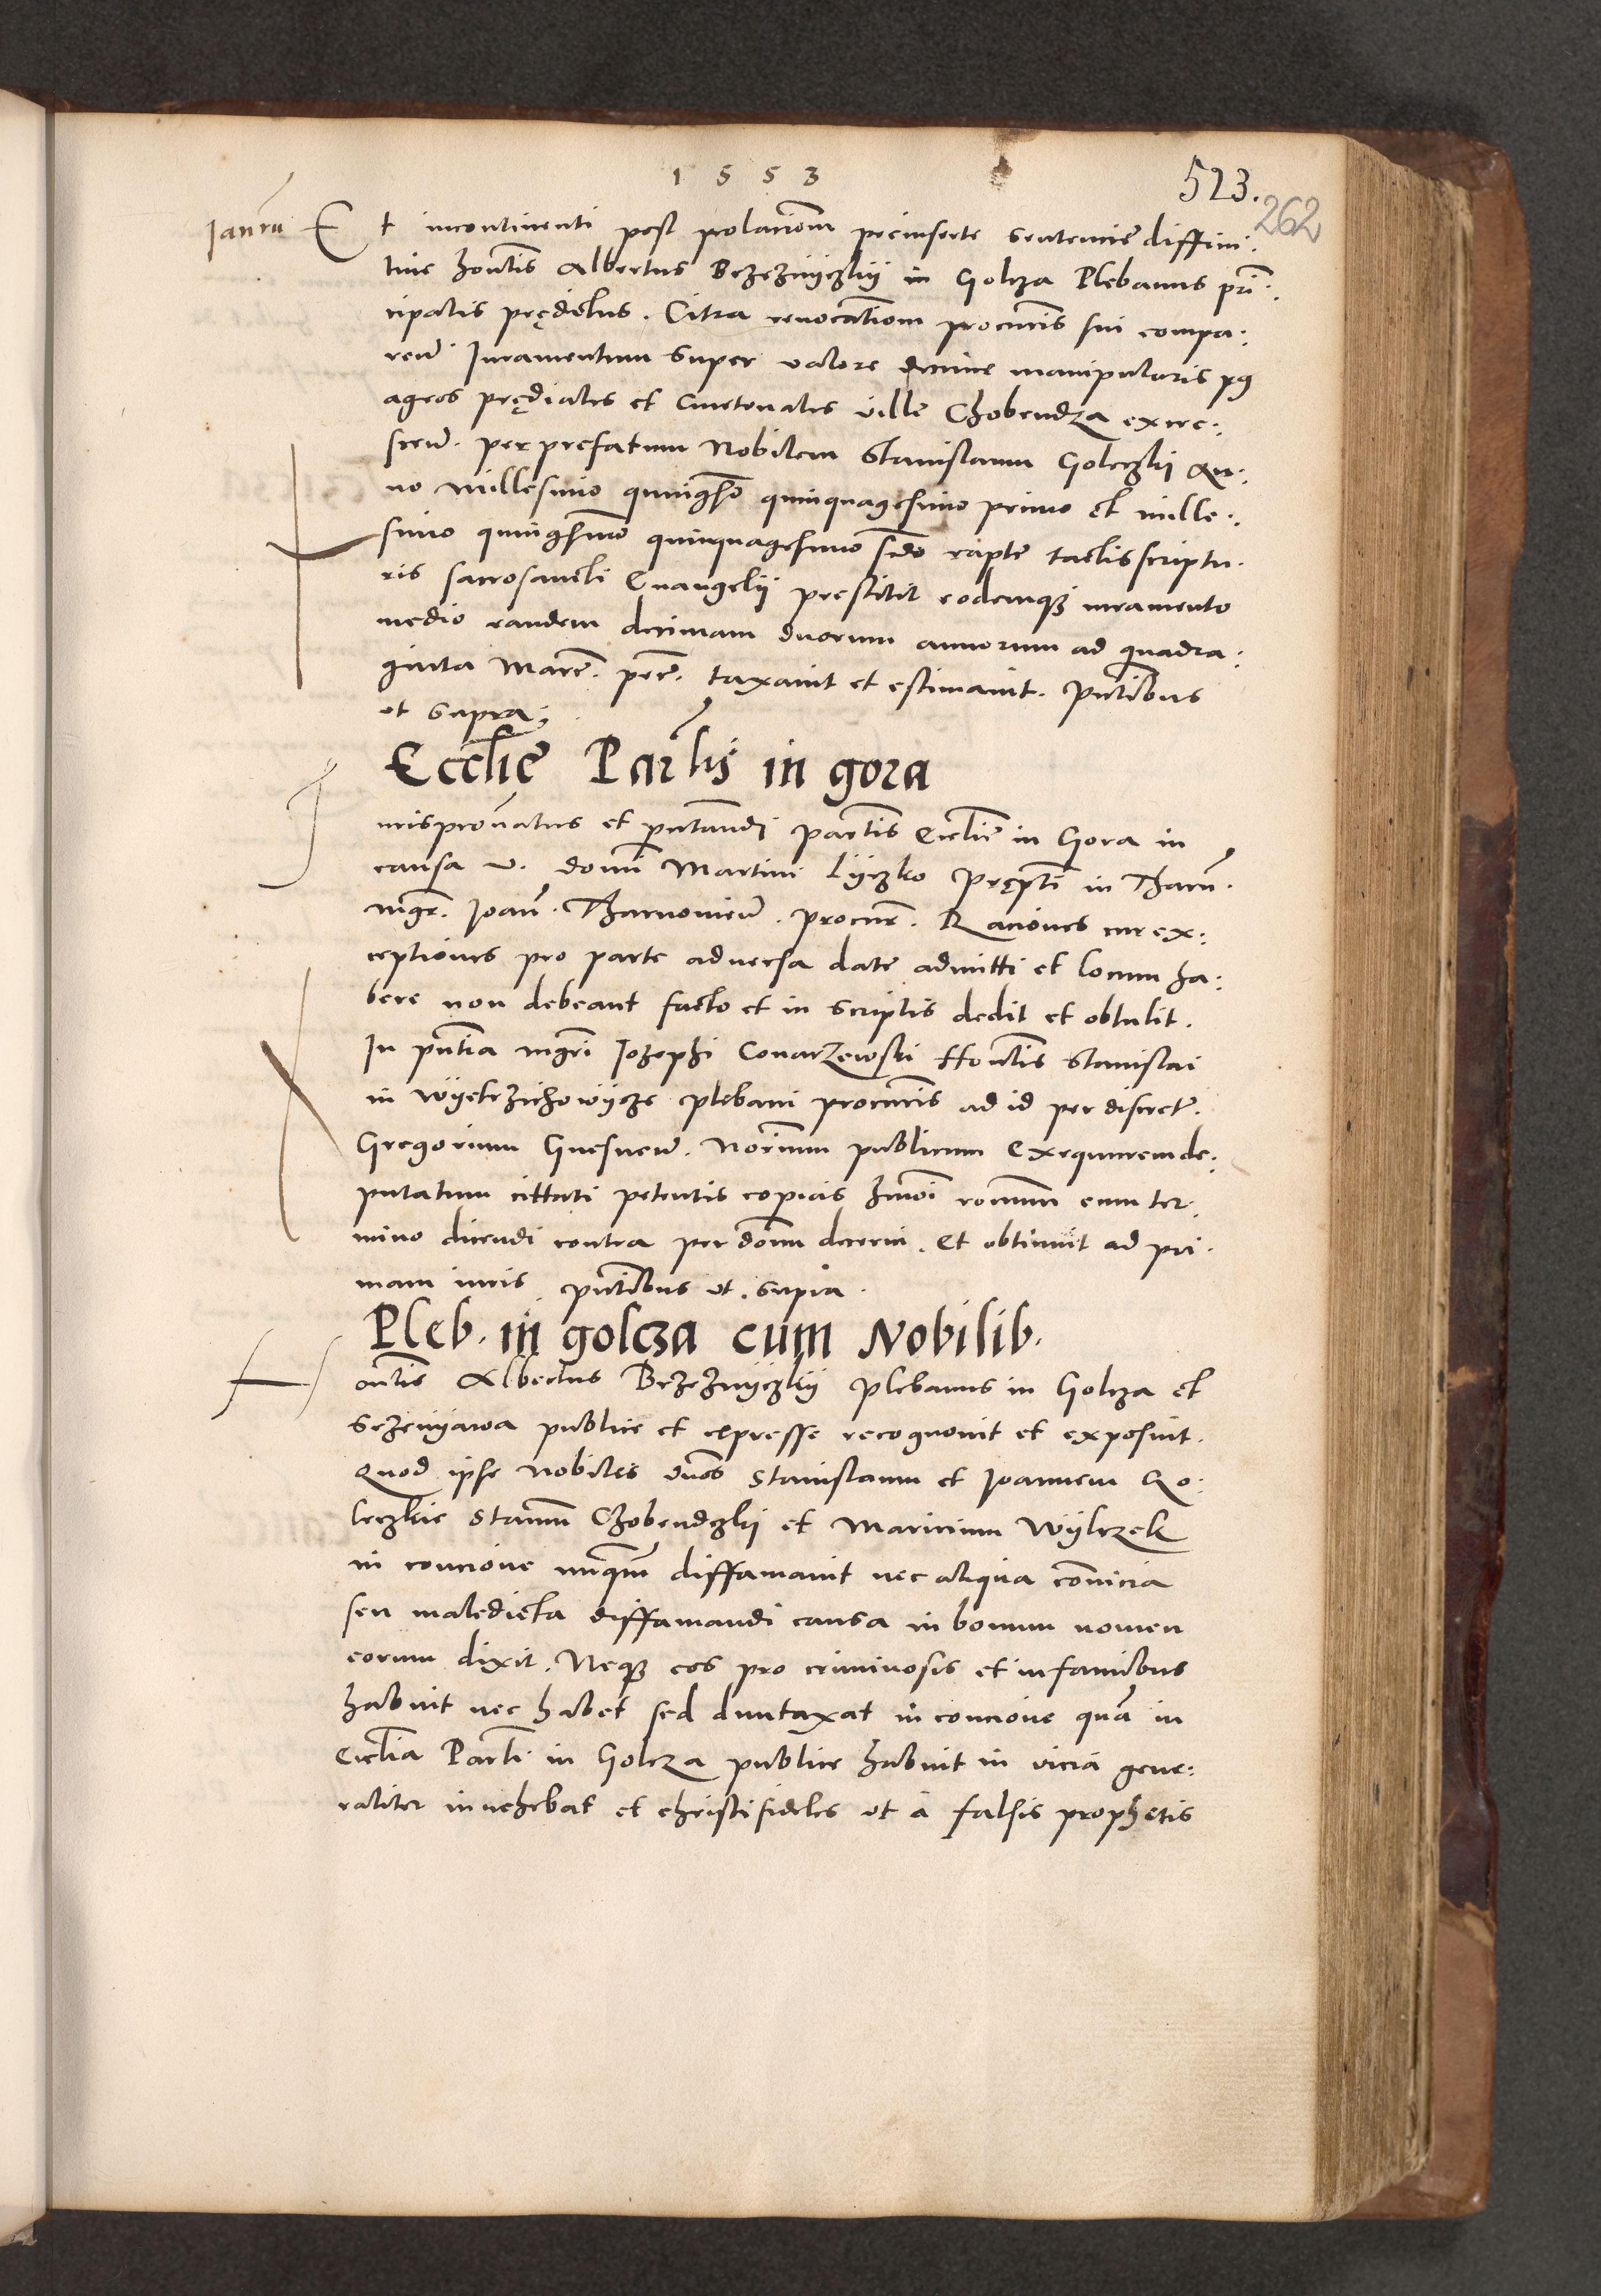 1553
523.
262
Januarii
Et incontinenti post prolacionem preinserte sentencie diffini:
tive honestis Albertus Brzeznyczkij in Golcza Plebanus prin:
cipalis prędictus. Citra revocationem procuratoris sui compa:
ren. Juramentum super valore decime manipularis per
agros prędiales et Cmetonales ville Chobendza excre:
scen. per prefatum Nobilem Stanislaum Goleczkij An:
no Millesimo quingentesimo quinquagesimo primo et mille:
simo quingentesimo quinquagesimo secundo rapte tactis scriptu.
ris sacrosancti Evangelij prestitit eodemque iuramento
medio eandem decimam duorum annorum ad quadra:
ginta Marc. pec. taxavit et estimavit. Presentibus
ut supra;
Ecclie Parlis in gora
Jurispatronatus et presentandi parochialis Ecclie in Gora in
causa v. domini Martini Lyczko Prępti in Tharn.
mgr. Joan. Tharnovien. procur. Raciones cur ex:
ceptiones pro parte adversa date admitti et locum ha:
bere non debeant facto et in scriptis dedit et obtulit.
In presentia mgri Josephi Conarzewski Honestis Stanislai
in Wyetrzichowycze plebani procuratoris ad id per discret.
Gregorium Gnesnen. Norium publicum Exequucionem de:
putatum cittati petentis copiam huiusmodi racionum cum ter.
mino dicendi contra per domnum decerni. Et obtinuit ad pri.
mam iuris. presentibus ut. supra.
Pleb. in golcza cum Nobilib.
Honestis Albertus Brzeznyczkij plebanus in Golcza et
Srzenyawa publice et expresse recognovit et exposuit.
Quod ipse Nobiles dnos Stanislaum et Joannem Go:
leczkie Stanm Chobendzkij et Maricium Wylczek
in concione nunquam diffamavit nec aliqua convicia
seu maledicta diffamandi causa in bonum nomen
eorum dixit. Neque eos pro criminosis et infamibus
habuit nec habet sed duntaxat in concione quam in
Ecclia Parli. in Golcza publice habuit in vicia gene:
raliter invehebat et christifideles ut a falsis prophetis